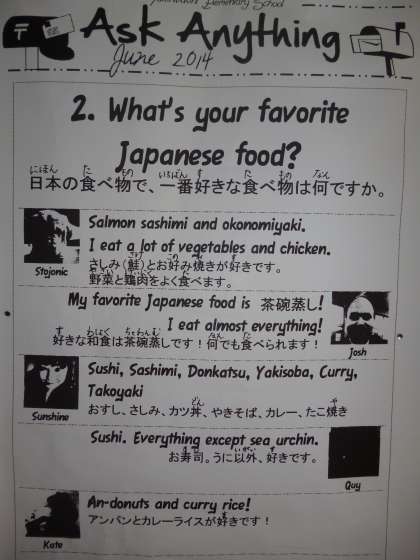 Elementary School
Ask Anything
June 2014
2. What's your favorite
Japanese food?
日本の食べ物で、一番好きな食べ物は何ですか。
Salmon sashimi and okonomiyaki.
I eat a lot of vegetables and chicken.
さしみ（鮭）とお好み焼きが好きです。
野菜と鶏肉をよく食べます。
Stojonic
My favorite Japanese food is 茶碗蒸し!
I eat almost everything!
好きな和食は茶碗蒸しです！何でも食べられます！
Josh
Sushi, Sashimi, Donkatsu, Yakisoba, Curry,
Takoyaki
おすし、さしみ、カツ丼、やきそば、カレー、たこ焼き
Sunshine
Sushi. Everything except sea urchin.
お寿司。うに以外、好きです。
Guy
An-donuts and curry rice!
アンパンとカレーライスが好きです！
Kate